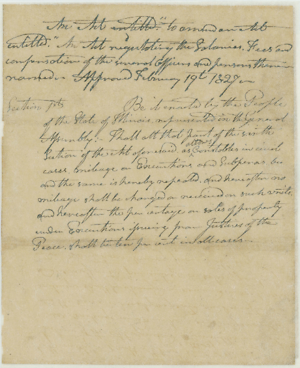 An Act entitled "To amend an Act
entitled "An Act regulating the Salaries, Fees and
compensations of the several officers and persons therein
named." Approved February 19th 1827.
Section 1st. Be it enacted by the People
of the State of Illinois, represented in the General
Assembly; That all that part of the sixth
Section of the Act aforesaid, as allows Constables in civil
cases mileage on Executions and Subpoenas be
and the same is hereby repealed, and hereafter no
mileage shall be charged or received on such writs,
and hereafter the per centage on sales of property
under Executions issuing from Justices of the
Peace, shall be ten per cent in all cases.